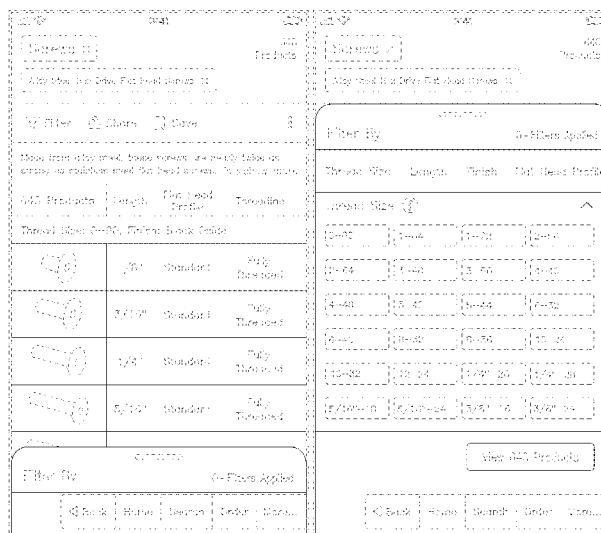 Screws
Products
Alloy Steel Hex Drive Flat Head Screws
Filter
Share
Save
Made from alloy steel, these screws are nearly twice as
strong as stainless steel flat head screws.
Products
Length
Flat Head
Profile
Threading
Thread Size: 0-80, Finish: Black Oxide
1/8"
Standard
Fully
Threaded
3/16"
Standard
Fully
Threaded
1/4"
Standard
Fully
Threaded
5/16"
Standard
Fully
Threaded
Filter By
0 Filters Applied
Back
Home
Search
Order
More...
Screws
Products
Alloy Steel Hex Drive Flat Head Screws
Filter By
0 Filters Applied
Thread Size
Length
Finish
Flat Head Profile
Thread Size
0-80
1-64
1-72
2-56
2-64
3-48
3-56
4-40
4-48
5-40
5-44
6-32
6-40
8-32
8-36
10-24
10-32
12-24
1/4"-20
1/4"-28
5/16"-18
5/16"-24
3/8"-16
3/8"-24
View
Products
Back
Home
Search
Order
More...